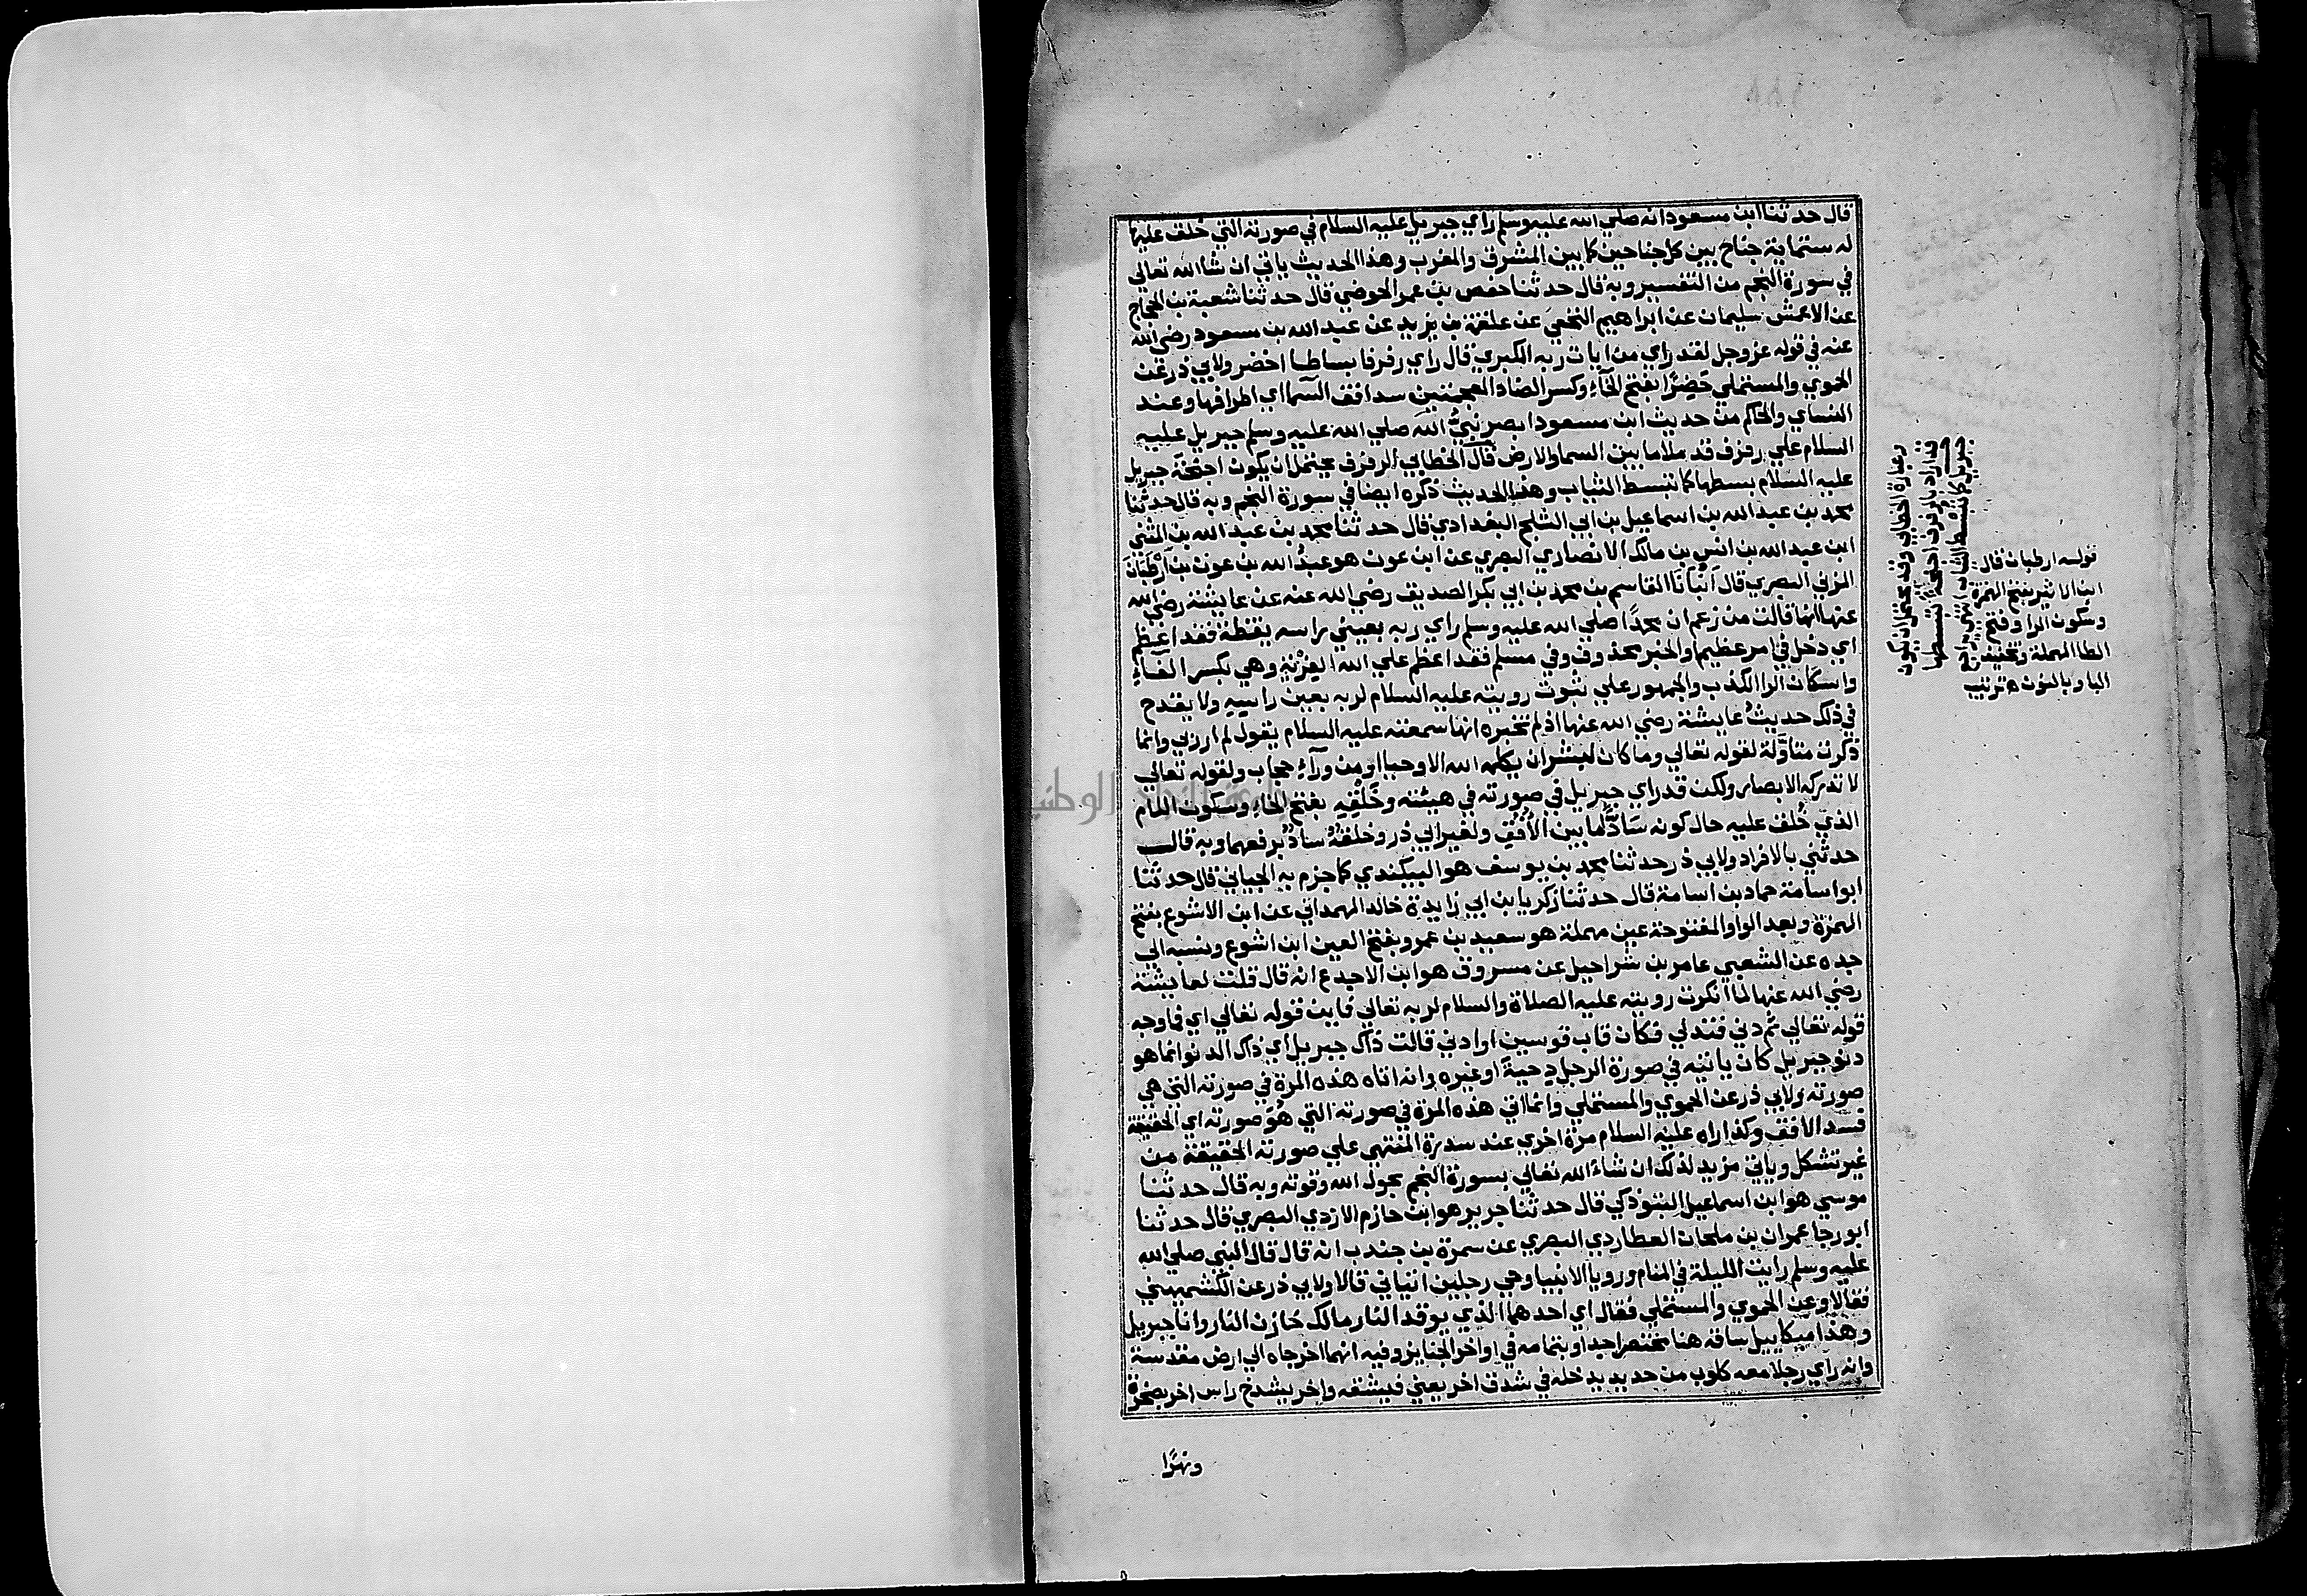 قال حدثنا ابن مسعود انه صلي الله عليه وسلم راي جبريل عليه السلام في صورته التي خلق عليها
له ستماية جناح بين كل جناحين كما بين المشرق والمغرب وهذا الحديث ياتي ان شا الله تعالي
في سورة النجم من التفسير وبه قال حدثنا حفص بن عمر الحوضي قال حدثنا شعبة بن الحجاج
عن الاعمش سليمان عن ابراهيم النخعي عن علقمة بن يزيد عن عبد الله بن مسعود رضي الله
عنه في قوله عز وجل لقد راي من ايات ربه الكبري قال راي رفرفا بساطا اخضر ولابي ذر عن
الحموي والمستملي خَضِرًا بفتح الخاء وكسر الضاد المعجمتين سد افق السما اي اطرافها وعند
النساي والحاكم من حديث ابن مسعود ابصر نبي الله صلي الله عليه وسلم جبريل عليه
السلام علي رفرف قد ملا ما بين السما والارض قال الخطابي الرفرف يحتمل ان يكون اجنحة جبريل
عليه السلام بسطها كما تبسط الثياب وهذا الحديث ذكره ايضا في سورة النجم وبه قال حدثنا
محمد بن عبد الله بن اسماعيل بن ابي الثلج البغدادي قال حدثنا محمد بن عبد الله بن المثني
ابن عبد الله بن انس بن مالك الانصاري البصري عن ابن عون هو عبد الله بن عون بن أرْطَبَانَ
المزني البصري قال أنْبَأنَا القاسم بن محمد بن ابي بكر الصديق رضي الله عنه عن عايشة رضي الله
عنها انها قالت من زعم ان محمدًا صلي الله عليه وسلم راي ربه بعيني راسه يقظة فقد اعظم
اي دخل في امر عظيم او الخبر محذوف وفي مسلم فقد اعظم علي الله الفِرْيَة وهي بكسر الفاء
واسكان الرا الكذب والجمهور علي ثبوت رويته عليه السلام لربه بعين راسه ولا يقدح
في ذلك حديث عايشة رضي الله عنها اذ لم تخبره انها سمعته عليه السلام يقول لم ار ربي وانما
ذكرت متأوّلة لقوله تعالي وما كان لبشر ان يكلمه الله الا وحيا او من ورآء حجاب ولقوله تعالي
لا تدركه الابصار ولكن قد راي جبريل في صورته في هيئته وخَلْقِهِ بفتح الخاء وسكون اللام
الذي خُلق عليه حال كونه سَادًّا ما بين الأُفُقِ ولغير ابي ذر وخلقُهُ سادٌّ برفعهما وبه قال
حدثني بالافراد ولابي ذر حدثنا محمد بن يوسف هو البيكندي كما جزم به الجياني قال حدثنا
ابو اسامة حماد بن اسامة قال حدثنا زكريا بن ابي زايدة خالد الهمداني عن ابن الاشوع بفتح
الهمزة وبعد الواو المفتوحة عين مهملة هو سعيد بن عمرو بفتح العين ابن اشوع ونسبه الي
جده عن الشعبي عامر بن شراحيل عن مسروق هو ابن الاجدع انه قال قلت لعايشة
رضي الله عنها لما انكرت رويته عليه الصلاة والسلام لربه تعالي فاين قوله تعالي اي فما وجه
قوله تعالي ثم دني فتدلي فكان قاب قوسين او ادني قالت ذاك جبريل اي ذاك الدنو انما هو
دنو جبريل كان ياتيه في صورة الرجل دحيةَ او غيره وانه اتاه هذه المرة في صورته التي هي
صورته ولابي ذر عن الحموي والمستملي وانما اتي هذه المرة في صورته التي هو صورته اي الحقيقة
فسد الافق وكذا راه عليه السلام مرة اخري عند سدرة المنتهي علي صورته الحقيقة من
غير تشكل وياتي مزيد لذلك ان شاء الله تعالي بسورة النجم بحول الله وقوته وبه قال حدثنا
موسي هو ابن اسماعيل التبوذكي قال حدثنا جرير هو ابن حازم الازدي البصري قال حدثنا
ابو رجا عمران بن ملحان العطاردي البصري عن سمرة بن جندب انه قال قال النبي صلي الله
عليه وسلم رايت الليلة في المنام ورويا الانبيا وحي رجلين اتياني قالا ولابي ذر عن الكشميهني
فقالا وعن الحموي والمستملي فقال اي احدهما الذي يوقد النار مالك خازن النار وانا جبريل
وهذا ميكاييل ساقه هنا مختصرا جدا وبتمامه في اواخر الجنايز وفيه انهما اخرجاه الي ارض مقدسة
وانه راي رجلا معه كلوب من حديد يدخله في شدق اخر يعني فيشقه واخر يشدخ راس اخر بصخرة
ونهرًا
وعبارة الخطابي وقد يحتمل ان يكون
قد اراد بالرفرف اجنحة تبسطها
جبريل كما تبسط الثياب انتهي
قوله ارطبان قال
ابن الاثير بفتح الهمزة
وسكون الرا وفتح
الطا المهملة وتخفيف
البا وبالنون ه ترتيب